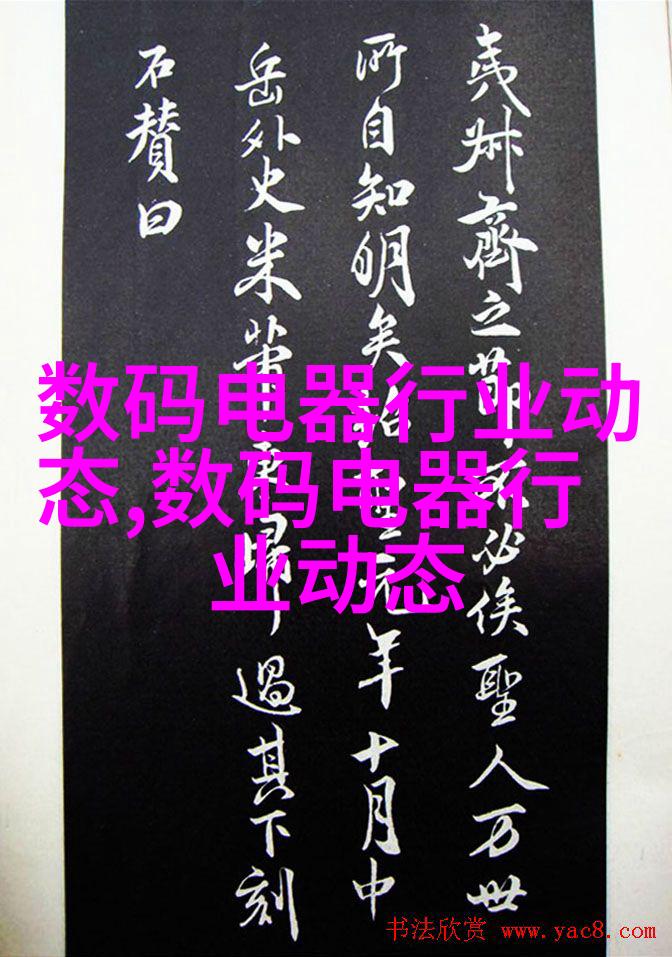 夷叔齊之節必俟聖人万世
所自知明矣紹聖元年十月中
岳外史米芾歸過其下刻
石賛曰
数码电器行业动
态,数码电器行
业动态
书法欣赏 www.yac8.com